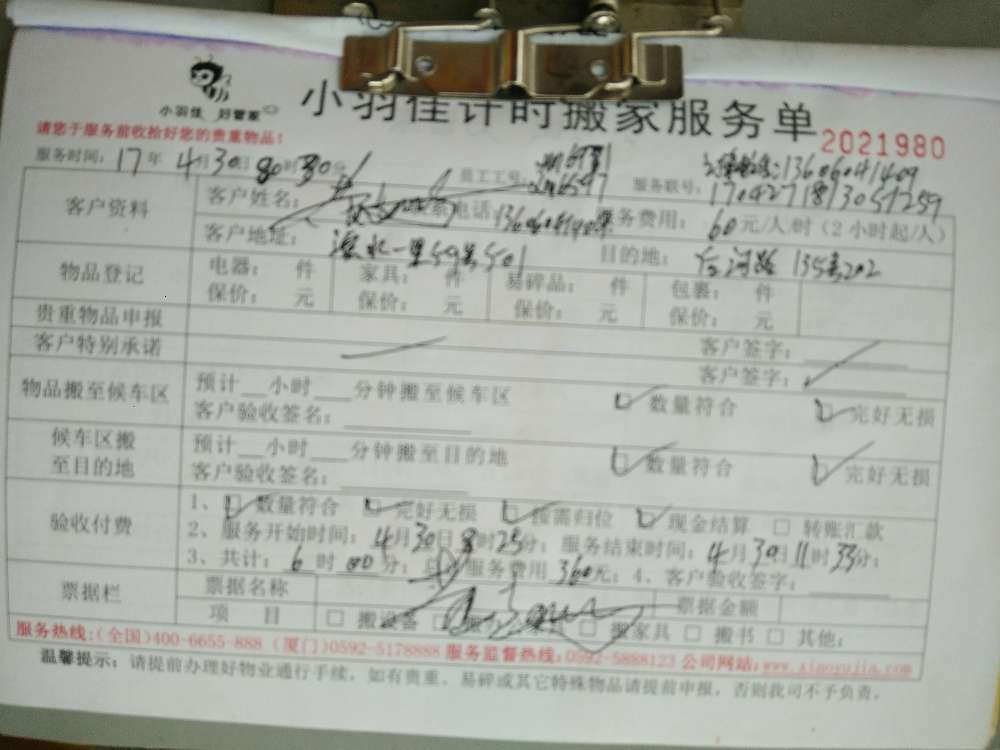 小羽佳 好管家
小羽佳计时搬家服务单
2021980
请您于服务前收拾好您的贵重物品!
服务时间: 17年4月30日 8时30分
员工工号:
13606041409
服务联号: 170427181305
客户资料
客户姓名:
联系电话:
服务费用: 60元/人/时(2小时起/人)
客户地址: 一里59号501
目的地: 后河路135号202
物品登记
电器: 件 家具: 件 易碎品: 件 包裹: 件
保价: 元 保价: 元 保价: 元 保价: 元
贵重物品申报
客户签字:
客户特别承诺
客户签字:
物品搬至候车区
预计__小时___分钟搬至候车区 数量符合 完好无损
客户验收签名:
候车区搬至目的地
预计__小时___分钟搬至目的地 数量符合 完好无损
客户验收签名:
验收付费
1、数量符合 完好无损 按需归位 现金结算 转账汇款
2、服务开始时间: 4月30日8时25分; 服务结束时间: 4月30日11时33分;
3、共计: 6时00分; 服务费用360元; 4、客户验收签字:
票据栏
票据名称 票据金额
项 目 搬设备 搬家具 搬书 其他:
服务热线:(全国)400-6655-888 (厦门)0592-5178888 服务监督热线:0592-5888123 公司网站:www.xiaoyujia.com
温馨提示: 请提前办理好物业通行手续, 如有贵重、易碎或其它特殊物品请提前申报, 否则我司不予负责。